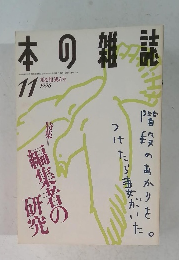 本の雑誌
11
特集=
編集者の
研究
階段のあかりを
つけたら妻がいた。